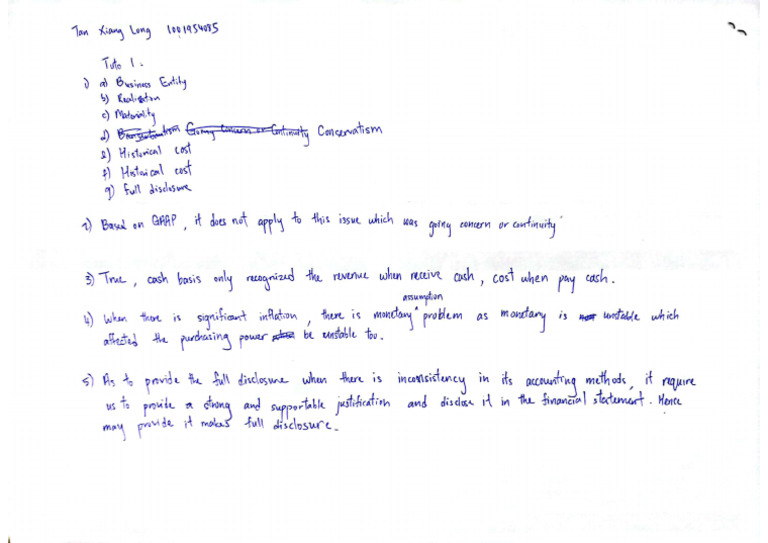 Tan Xiang Long 1001954085
Tuto 1.
1) a) Business Entity
b) Realisation
c) Materiality
d) Going Concern or Continuity Conservatism
e) Historical cost
f) Historical cost
g) Full disclosure
2) Based on GAAP, it does not apply to this issue which was going concern or continuity
3) True, cash basis only recognized the revenue when receive cash, cost when pay cash.
assumption
4) When there is significant inflation, there is monetary ^ problem as monetary is unstable which
affected the purchasing power be unstable too.
5) As to provide the full disclosure when there is inconsistency in its accounting methods, it require
us to provide a strong and supportable justification and disclose it in the financial statement. Hence
may provide it makes full disclosure.